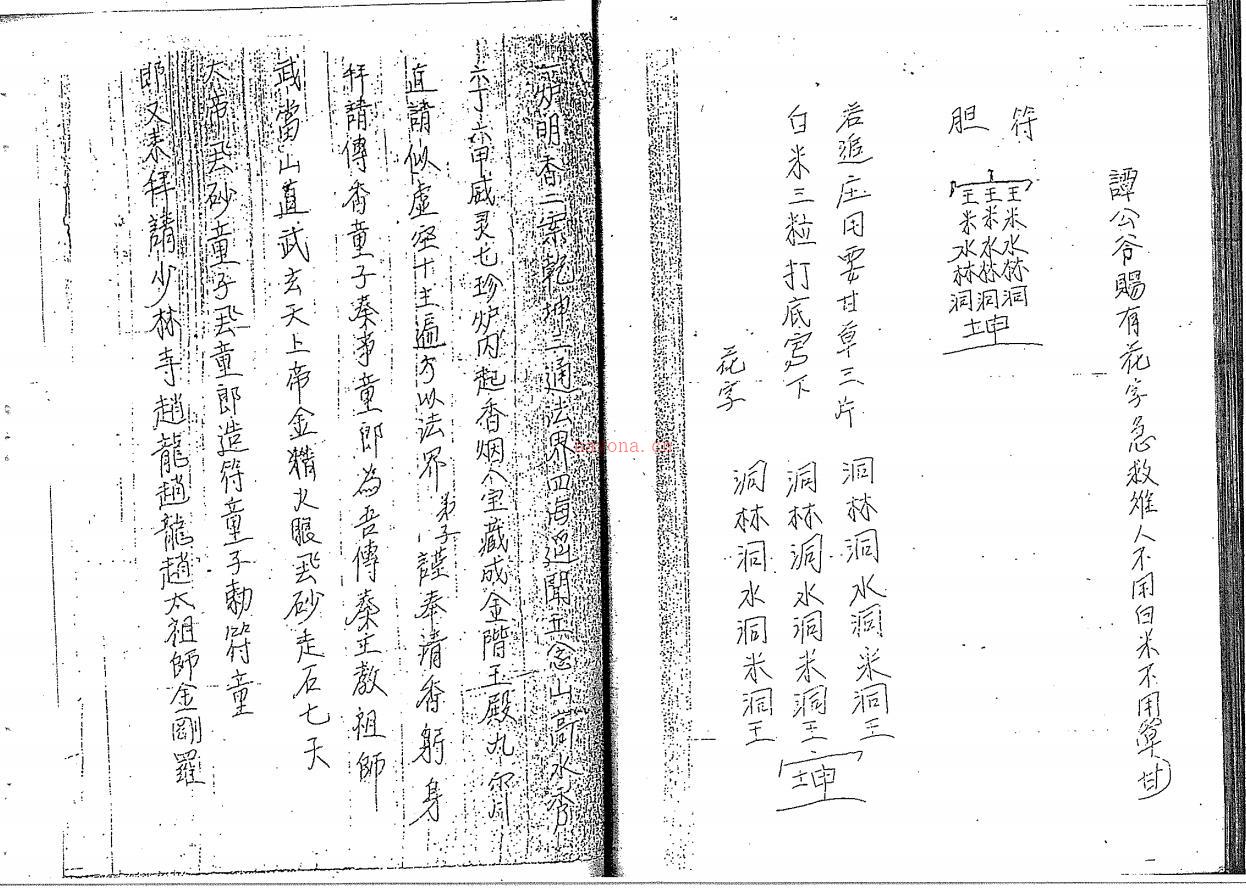 譚公爷賜有花字急救难人不用白米不用草甘
符
胆
王米水林洞
王米水林洞
王米水林洞
坤
若追庄用要甘草三片
白米三粒打底宫下
花字
洞林洞水洞米洞王
洞林洞水洞米洞王
洞林洞水洞米洞王
坤
一炉明香二業乾坤三通法界四海遥聞五念山高水秀
六丁六甲威灵七珍炉内起香烟八宝藏成金階王殿九
直請似虚空十主遍方以法界弟子謹奉清香躬身
拜請傳香童子奏事童郎為吾傳奏主教祖師
武當山真武玄天上帝金精火眼飛砂走石七天
大帝飛砂童子飛童郎造符童子勅符童
郎又奉拜請少林寺趙龍趙龍趙太祖師金剛羅